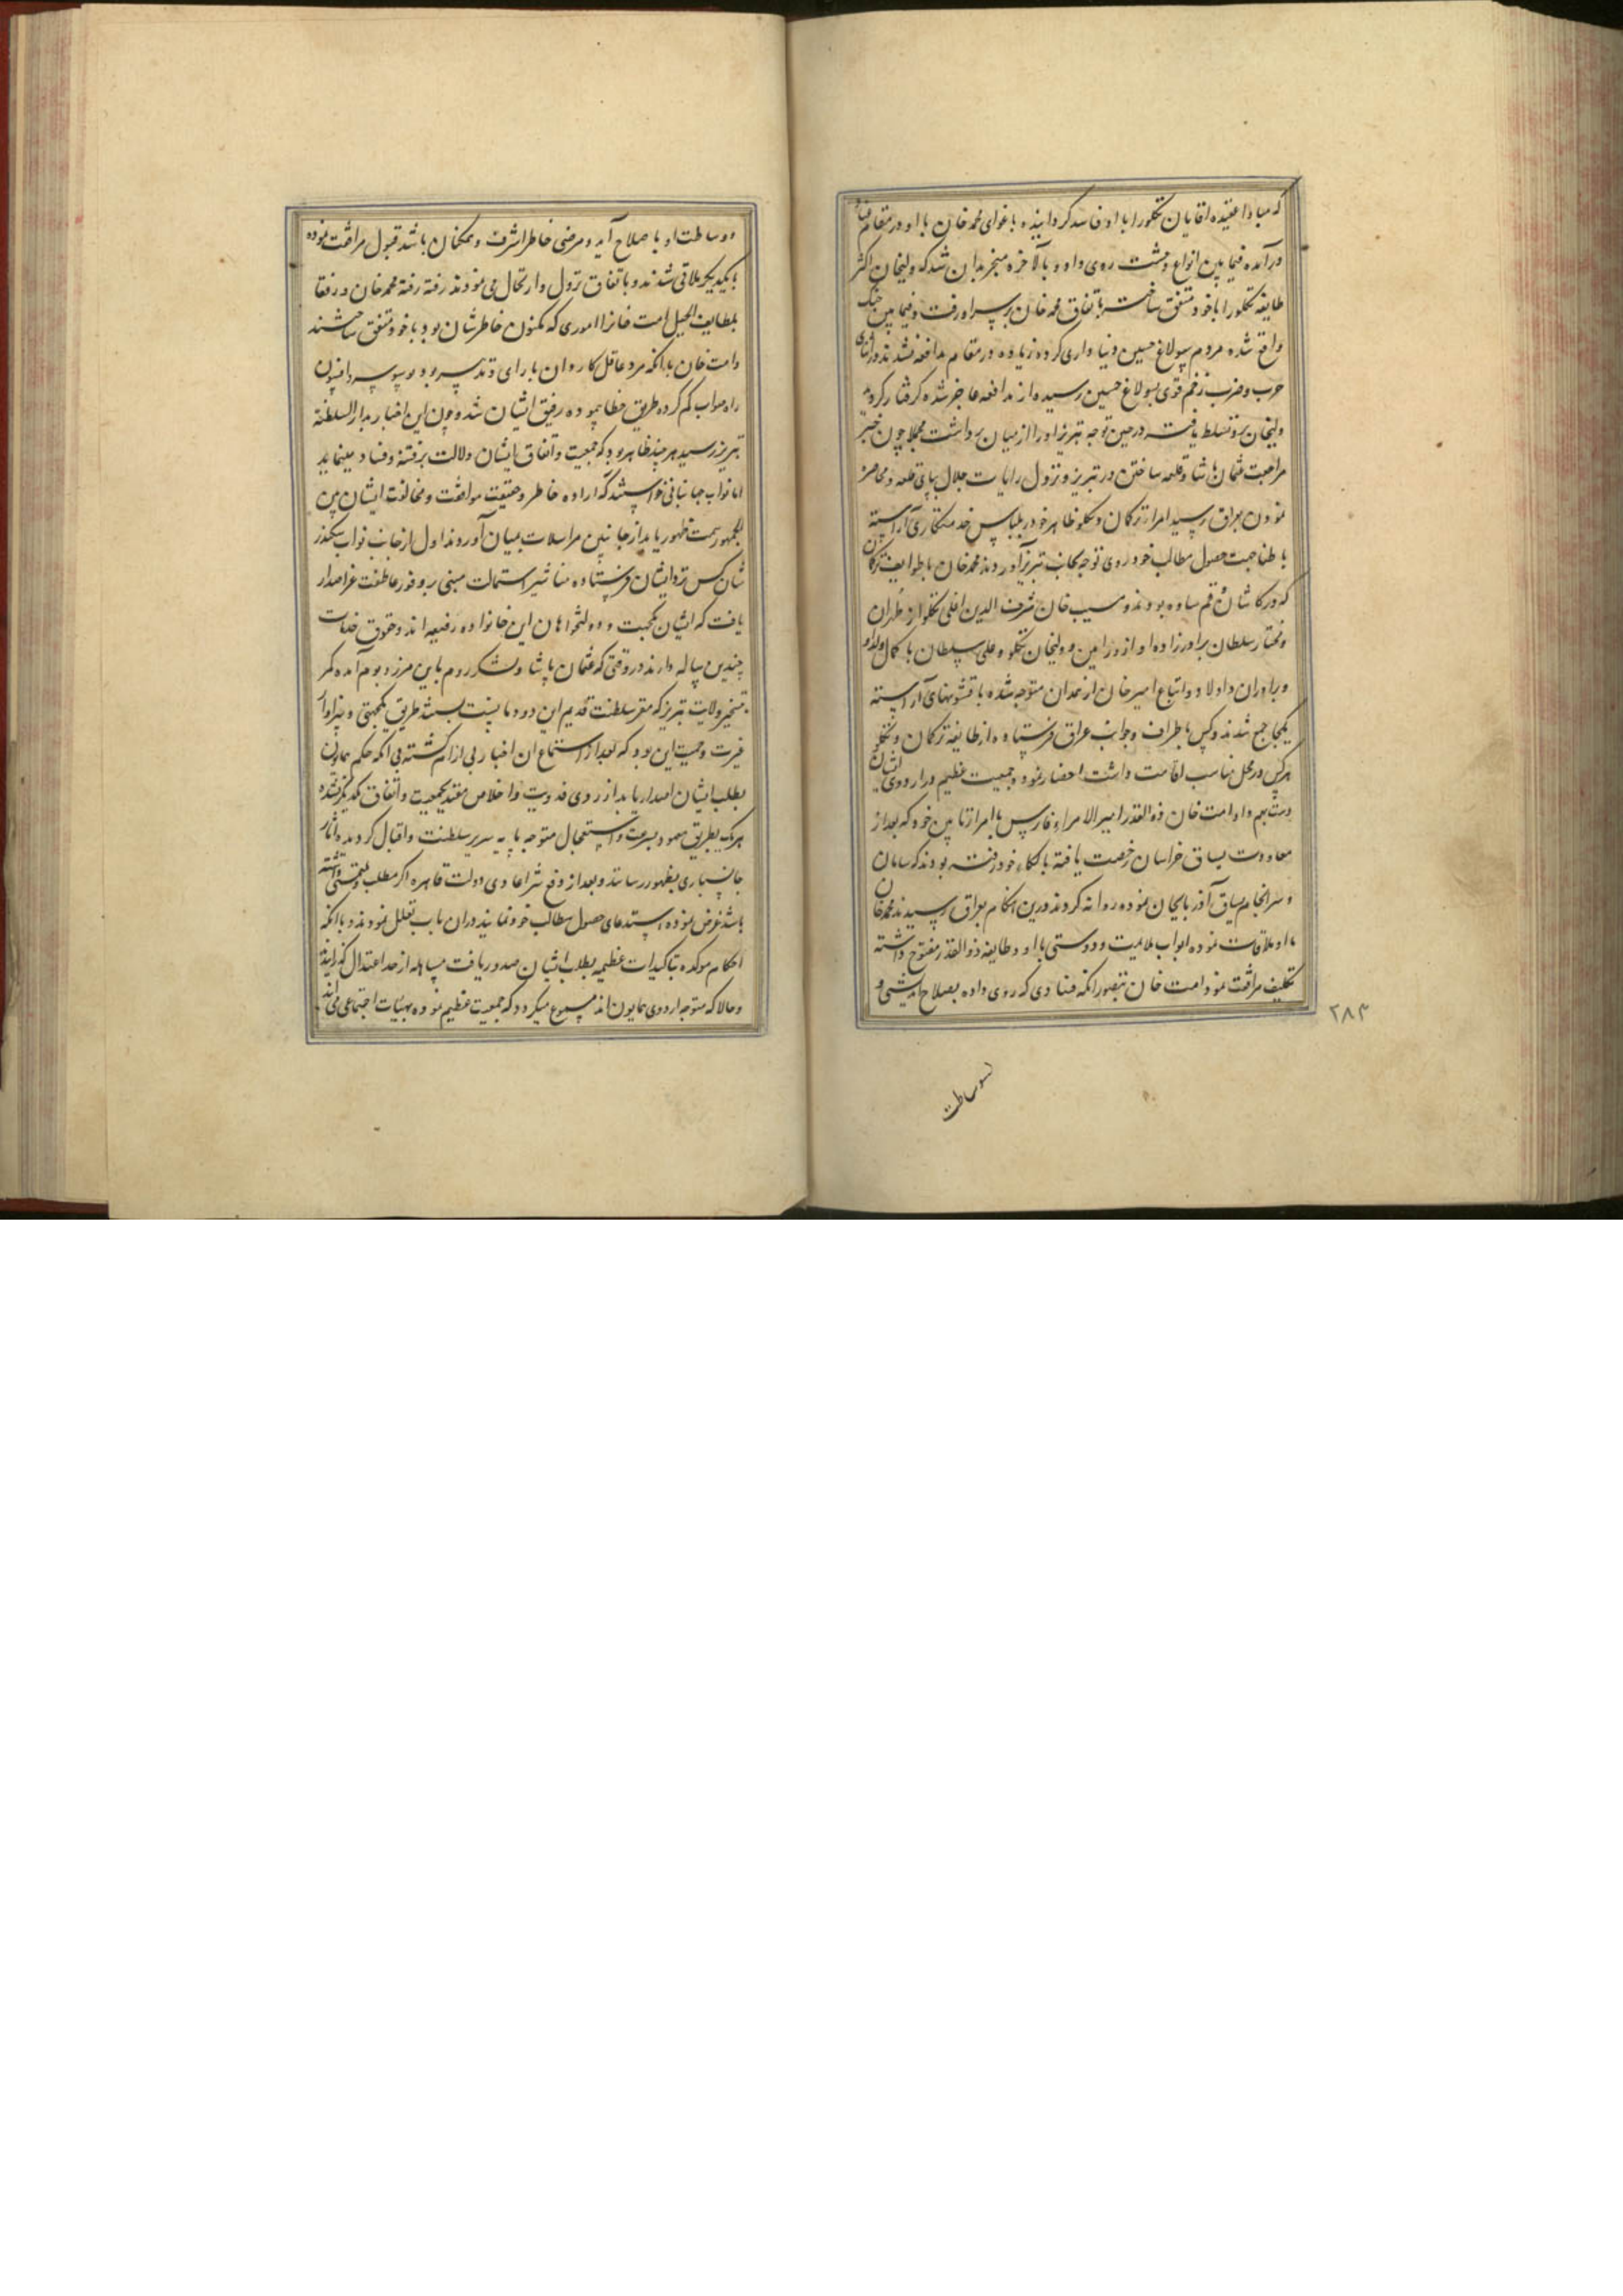 که مبادا عقیده اقایان تکلورا با او فاسد گردانیده باغوای محمد خان با او در مقام
درآمده فیمابین انواع وحشت روی داد و بالاخره منجر بدان شد که ولیخان اکثر
طایفه تکلورا باخود متفق ساخته باتفاق محمد خان برسر او رفت و فیمابین جنک
واقع شده مردم سولاغ حسین دنیا داری کرده زیاده در مقام مدافعه نشدند و در اثنای
حرب و ضرب زخم قوی بسولاغ حسین رسیده از مدافعه عاجز شده گرفتار گردید
ولیخان برو تسلط یافته درحین توجه تبریز او را از میان برداشت مجملا چون خبر
مراجعت عثمان پاشا و قلعه ساختن در تبریز و نزول رایات جلال بپای قلعه و محاصره
نمودن بعراق رسید امرا ترکمان و تکلو ظاهر خود بلباس خدمتکاری آراسته
باطنا جهت حصول مطالب خود روی توجه بجانب تبریز آوردند محمد خان با طوایف ترکمان
که در کاشان و قم ساوه بودند و مسیب خان شرف الدین اغلی تکلو از طهران
و مختار سلطان برادرزاده او از ورامین و ولیخان تکلو و علی سلطان پاکمال و اولاد
و برادران و اولاد و اتباع امیر خان از همدان متوجه شده با قشونهای آراسته
یکجا جمع شدند و کس باطراف و جوانب عراق فرستاده از طایفه ترکمان و تکلو
هرکس در محل مناسب اقامت داشت احضار نمود و جمعیت عظیم در اردوی ایشان
دست بهم داد امت خان ذوالقدر امیرالامراء فارس با امرا تابین خود که بعد از
معاودت یساق خراسان رخصت یافته بالکاء خود رفته بودند که سامان
و سرانجام یساق آذربایجان نموده روانه کردند درین هنکام بعراق رسیدند محمد خان
با او ملاقات نموده ابواب ملایمت و دوستی با او و طایفه ذوالقدر مفتوح داشته
تکلیف مرافقت نمود امت خان بتصور انکه فسادی که روی داده بصلاح اندیشی و
۲۸۳
وساطت
وساطت او باصلاح آید و مرضی خاطر اشرف و همکنان باشد قبول مرافقت نموده
با یکدیگر ملاقی شدند و باتفاق نزول و ارتحال می نمودند رفته رفته محمد خان و رفقا
بلطایف الحیل امت خانرا اموری که مکنون خاطرشان بود با خود متفق ساختند
و امت خان با انکه مرد عاقل کاردان با رای و تدبیر بود بوسوسه و افسون
راه صواب کم کرده طریق خطا پیموده رفیق ایشان شد و چون این اخبار بدارالسلطنه
تبریز رسید هر چند ظاهر بود که جمعیت و اتفاق ایشان دلالت بر فتنه و فساد مینماید
اما نواب جهانبانی خواستند که اراده خاطر و حقیقت موافقت و مخالفت ایشان بین
الجمهور سمت ظهور یابد از جانبین مراسلات بمیان آوردند اول از جانب نواب سکندر
شان کس نزد ایشان فرستاده مناشیر استمالت مبنی بر وفور عاطفت عز اصدار
یافت که ایشان یکجهت و دولتخواهان این خانواده رفیعه اند و حقوق خدمات
چندین ساله دارند در وقتی که عثمان پاشا و لشکر روم باین مرز و بوم آمده کمر
تسخیر ولایت تبریز که مقر سلطنت قدیم این دودمانست بستند طریق یکجهتی و سزاوار
غیرت و حمیت این بود که بعد از استماع ان اخبار بی ازانکه حکم همایون
بطلب ایشان اصدار یابد از روی فدویت و اخلاص مقید بجمعیت و اتفاق یکدیگر نشده
هریک بطریق معهود بسرعت و استعجال متوجه پایه سریر سلطنت و اقبال کردیده آثار
جانسپاری بظهور رسانند و بعد از دفع شر اعادی دولت قاهره اکر مطلب و ملتمسی داشته
باشند عرض نموده استدعای حصول مطالب خود نمایند دران باب تعلل نمودند و با انکه
احکام موکده بتاکیدات عظیمه بطلب ایشان صدور یافت مساهله از حد اعتدال گذرانیدند
و حالا که متوجه اردوی همایون اند مسموع میکردد که جمعیت عظیم نموده بهیئات اجتماعی می آیند